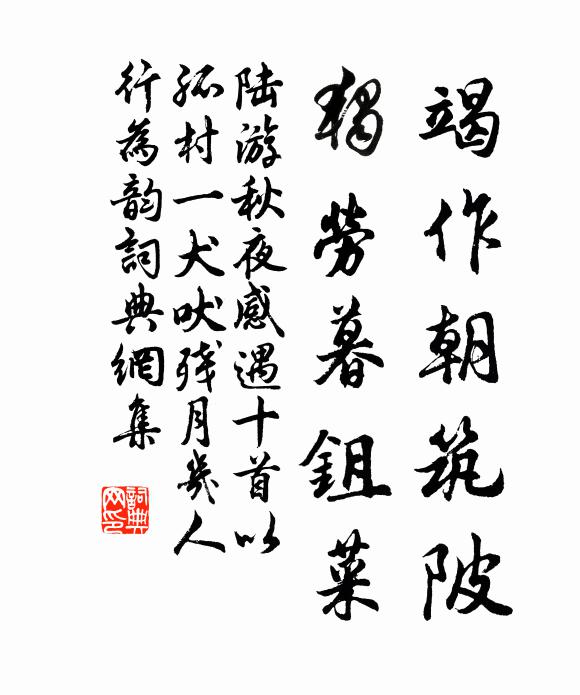 竭作朝筑陂
獨勞暮鉏菜
陆游秋夜感遇十首以
孤村一犬吠残月幾人
行為韵詞典網集
詞典网印